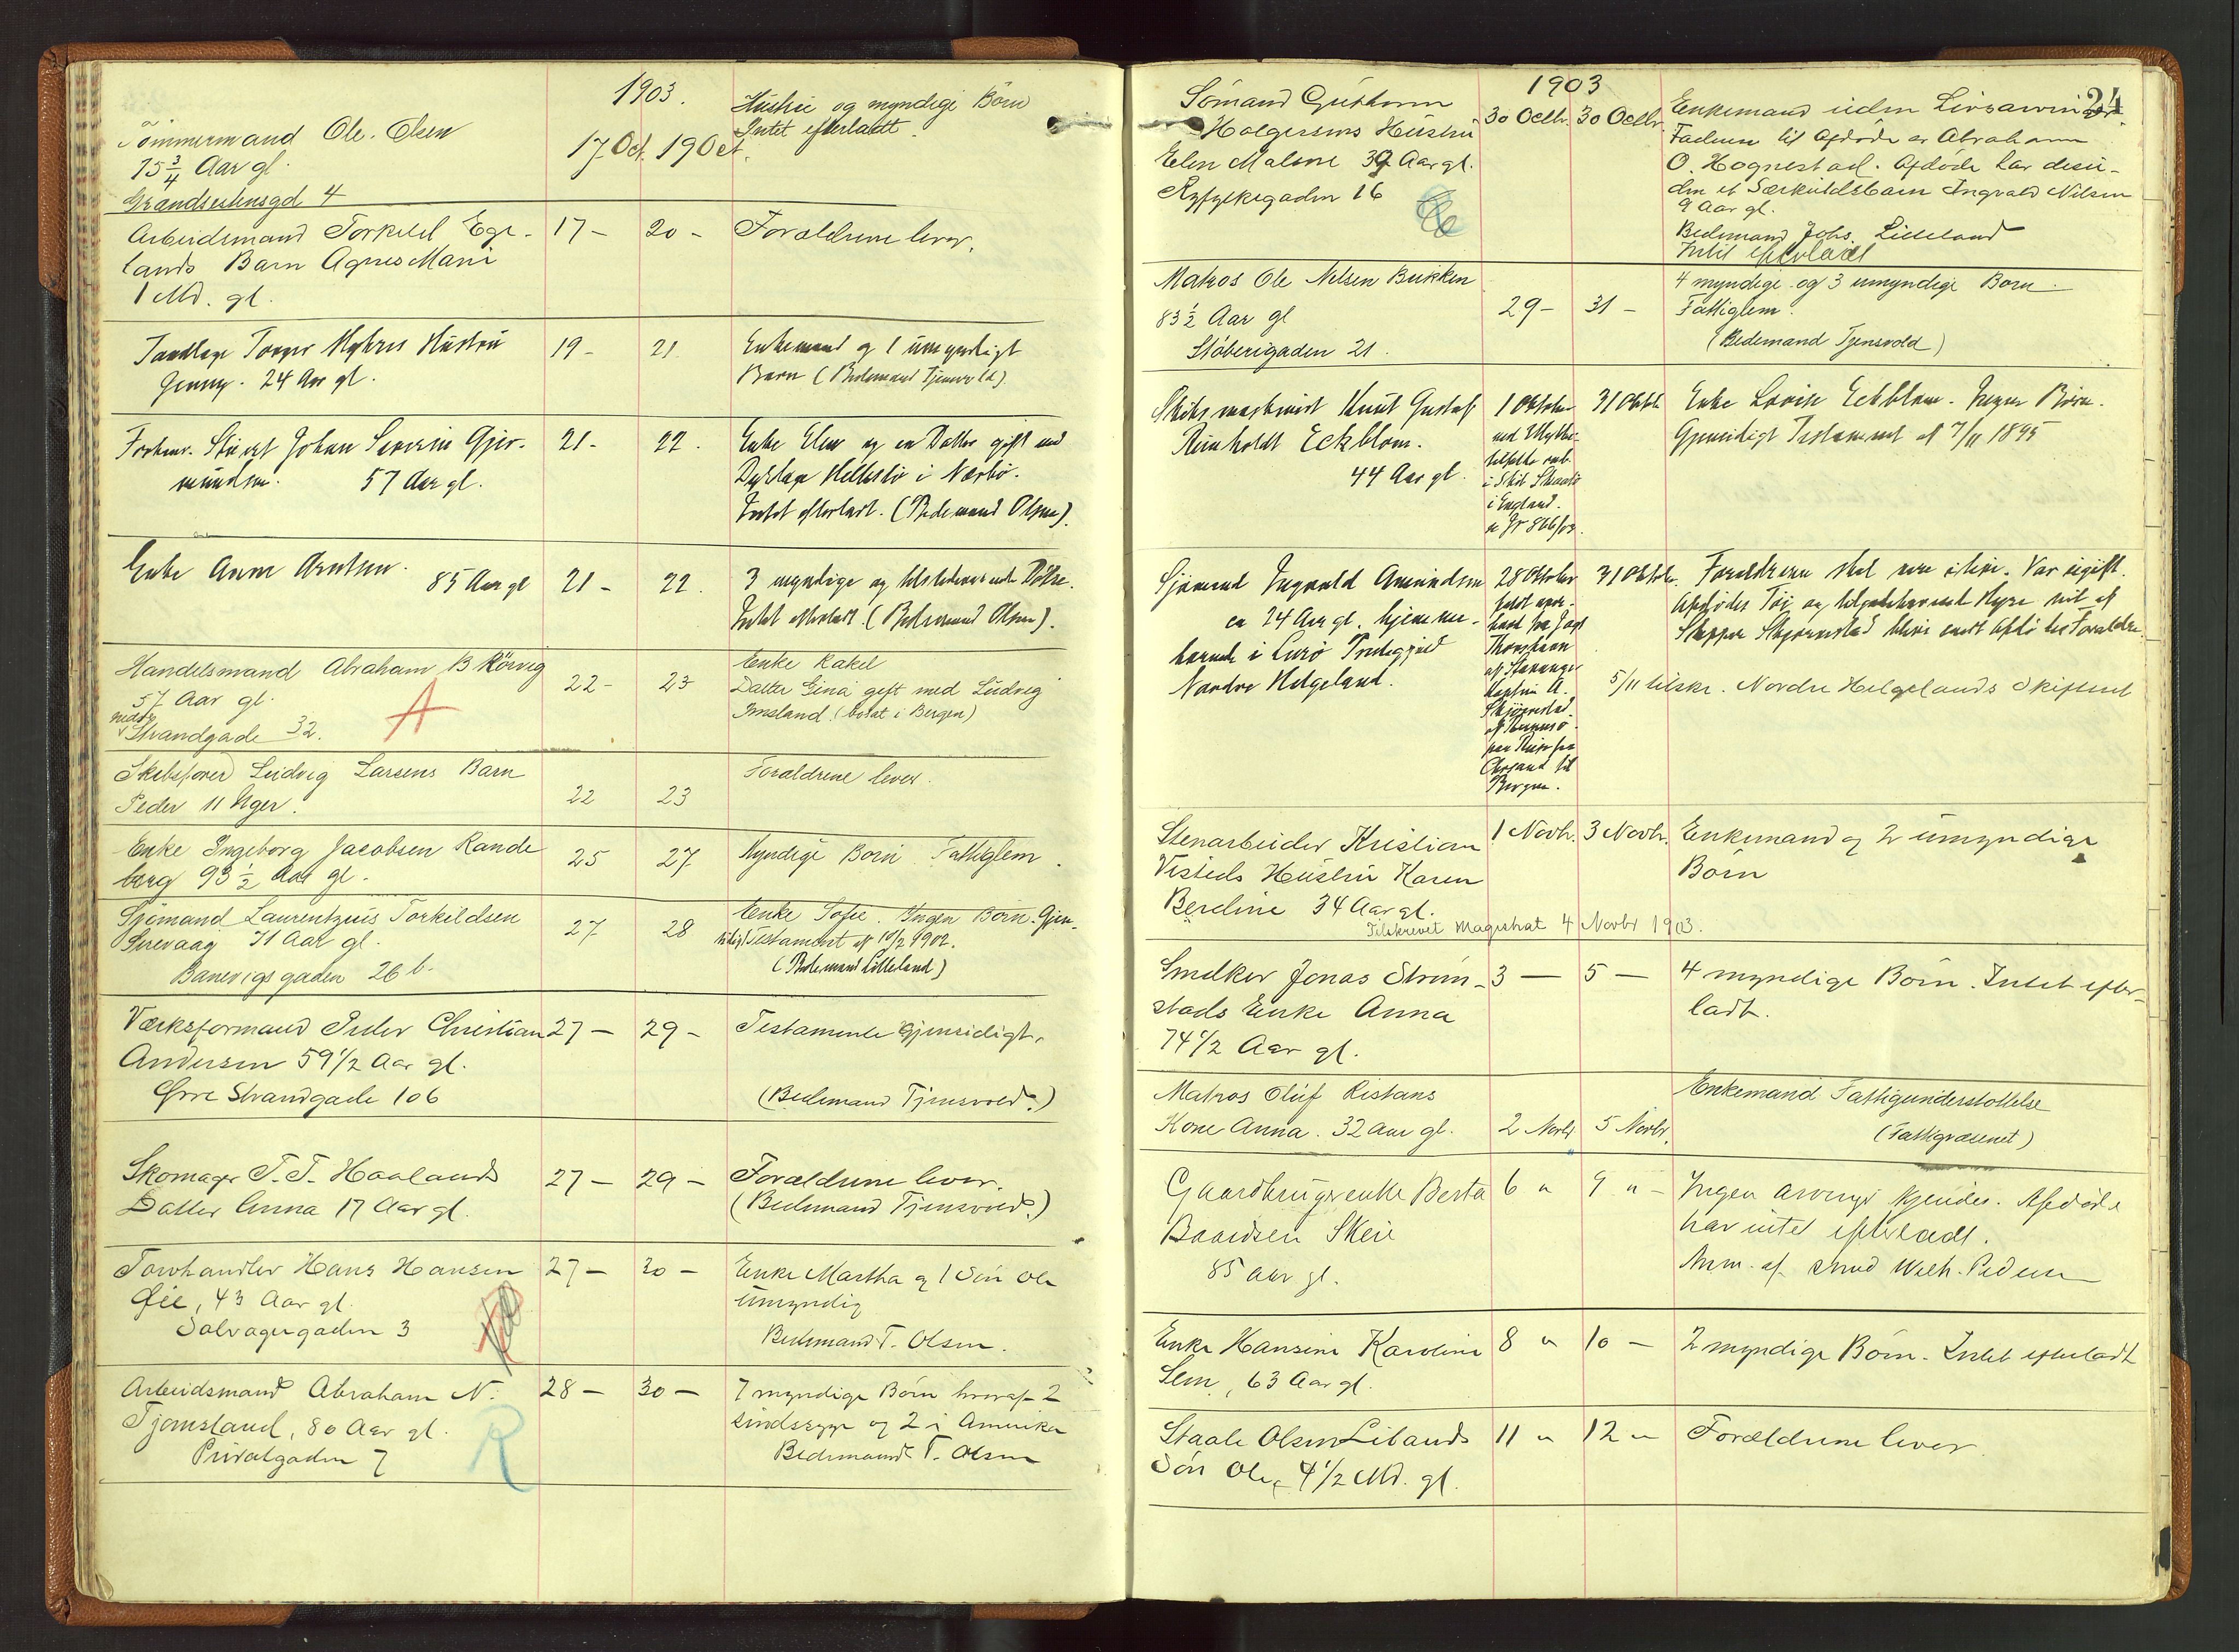 1903.
Tømmermand Ole Olsen
75 3/4 Aar gl.
Grandsestensgd 4
17 Oct. 19 Oct.
Hustru og myndige Börn
Intet efterladt.
Arbeidsmand Torkild Ege-
lands Barn Agnes Marie
1 Md. gl.
17 - 20 -
Forældrene lever.
Tandlæge Torger Myhres Hustru
Jenny. 24 Aar gl.
19 - 21
Enkemand og 1 umyndigt
Barn (Bedemand Tjensvold)
Forhenv. Stuert Johan Severin Gjer-
mundsen. 57 Aar gl.
21 - 22.
Enke Elen og en Datter gift med
Dyrlæge Hellestø i Nærbø.
Intet efterladt. (Bedemand Olsen).
Enke Anne Arntsen.
85 Aar gl
21 - 22.
3 myndige og tilstedeværende Døtre.
Intet efterladt. (Bedemand Olsen).
Handelsmand Abraham B. Rörvig
57 Aar gl.
nedre Strandgade 32.
A
22 - 23
Enke Rakel
Datter Gina gift med Ludvig
Imsland (bosat i Bergen)
Skibsfører Ludvig Larsens Barn
Peder 11 Uger.
22 23
Forældrene lever.
Enke Ingeborg Jacobsen Rande
berg 93 1/2 Aar gl.
25 27
Myndige Born Fattiglem.
Sjømand Laurentzius Torkildsen
Sirevaag 71 Aar gl.
Banevigsgaden 26 b.
27 28
Enke Sofie. Ingen Börn. Gjen-
sidig Testament af 19/2 1902.
(Bedemand Lilleland)
Værksformand Peder Christian
Andersen 59 1/2 Aar gl.
Øvre Strandgade 106
27 - 29 -
Testamente gjensidigt.
(Bedemand Tjensvold.)
Skomager T. T. Haalands
Datter Anna 17 Aar gl.
27 - 29 -
Forældrene lever.
(Bedemand Tjensvold.)
Torvhandler Hans Hansen
Øie, 43 Aar gl.
Salvagergaden 3
27 - 30 -
Enke Martha og 1 Sön Ole
umyndig
Bedemand T. Olsen.
Arbeidsmand Abraham N.
Tjomsland, 80 Aar gl.
Privatgaden 7
R
28 - 30 -
7 myndige Börn hvoraf 2
sindssyge og 2 i Amerika
Bedemand T. Olsen
1903
24
Sömand Guthorm
Holgersens Hustru
Elen Malene 39 Aar gl.
Ryfylkegaden 16
30 Octbr. 30 Octbr.
Enkemand uden Livsarvinger.
Faderen til Afdøde er Abraham
O. Hognestad. Afdøde har desu-
den et Særkuldsbarn Ingvald Nilsen
9 Aar gl.
Bedemand Johs. Lilleland
Intet efterladt
Matros Ole Nilsen Bukken
83 1/2 Aar gl
Støberigaden 21.
29 - 31 -
4 myndige og 3 umyndige Born.
Fattiglem.
(Bedemand Tjensvold)
Skibsmaskinist Knut Gustaf
Reinholdt Eckblom.
44 Aar gl.
1 Oktober
i England.
31 Oktbr
Enke Lovise Eckblom. Ingen Börn.
Gjensidigt Testament af 7/11 1895
Sjømand Ingvald Amundsen
ca 24 Aar gl. hjemme-
hørende i Lurø Præstegjeld
Nordre Helgeland.
28 Oktober
faldt over-
bord fra Jagt
Thorsteinn
af Stavanger
Kaptein A.
Skjørestad
paa Reise fra
til
Bergen.
31 Oktbr.
Forældrene skal være i live. Var ugift.
Afdødes Tøi og tilgodehavende Hyre vil af
Skipper Skjørestad blive sendt Afdødes Forældre
5/11 tilskr. Nordre Helgelands Skifteret
Stenarbeider Kristian
Visteds Hustru Karen
Bereline 34 Aar gl.
Tilskrevet Magistrat 4 Novbr 1903.
1 Novbr. 3 Novbr.
Enkemand og 2 umyndige
Börn
Smelker Jonas Strøm-
stads Enke Anna
74 1/2 Aar gl.
3 - 5 -
4 myndige Börn. Intet efter-
ladt.
Matros Oluf Ristans
Kone Anna. 32 Aar gl.
2 Novbr 5 Novbr.
Enkemand Fattigunderstottelse
(Fattigvæsenet)
Gaardbrugerenke Berta
Baardsen Skeie
85 Aar gl.
6 " 9 " -
Ingen arvinger kjendes. Afdøde
har intet efterladt.
Anm. af Smed Wilh. Pedersen
Enke Hansine Karoline
Sem, 63 Aar gl.
8 " 10 -
2 myndige Börn. Intet efterladt
Staale Olsen Libands
Sön Ole, 4 1/2 Md. gl.
11 " 12 "
Forældrene lever.